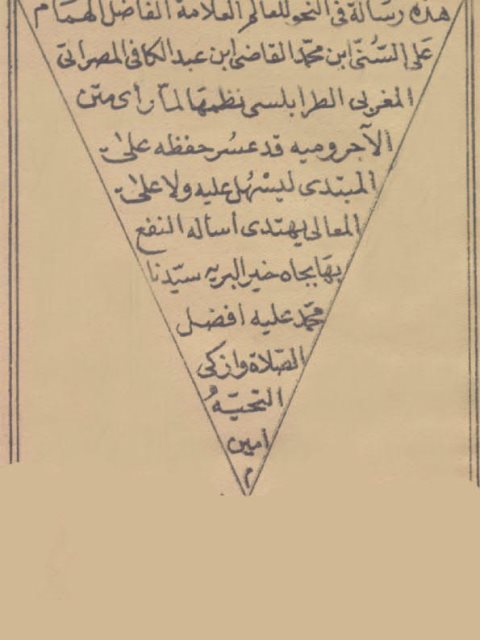 هذه رسالة فى النحو للعالم العلامة الفاضل الهمام
على السنّى ابن محمّد القاضى ابن عبد الكافى المصراتى
المغربى الطرابلسى نظمها لمّا رأى متن
الآجروميه قد عسُر حفظه على
المبتدى ليسْهُل عليه ولا على
المعالى يهتدى أسأله النفع
بها بجاه خير البريه سيّدنا
محمّد عليه افضل
الصّلاة وازكى
التحيّه
امين
م